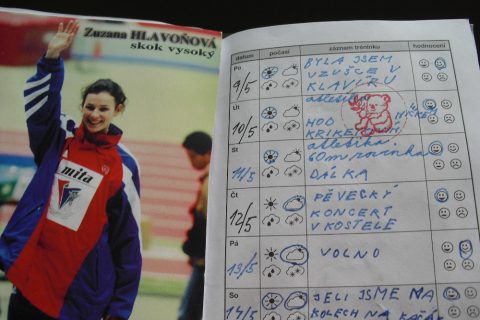 Zuzana HLAVOŇOVÁ
skok vysoký
mita
datum počasí záznam tréninku hodnocení
Po
9/5
BYLA JSEM
VZUŠCE V
KLAVÍRU
Út
10/5
atletika
HOD
KRIKETOVÝM
MÍČKEM
St
11/5
atletika.
60m rovinka
DÁLKA
Čt
12/5
PĚVECKÝ
KONCERT
V KOSTELE
Pá
13/5
VOLNO
So
14/5
JELI JSME NA
KOLECH NA